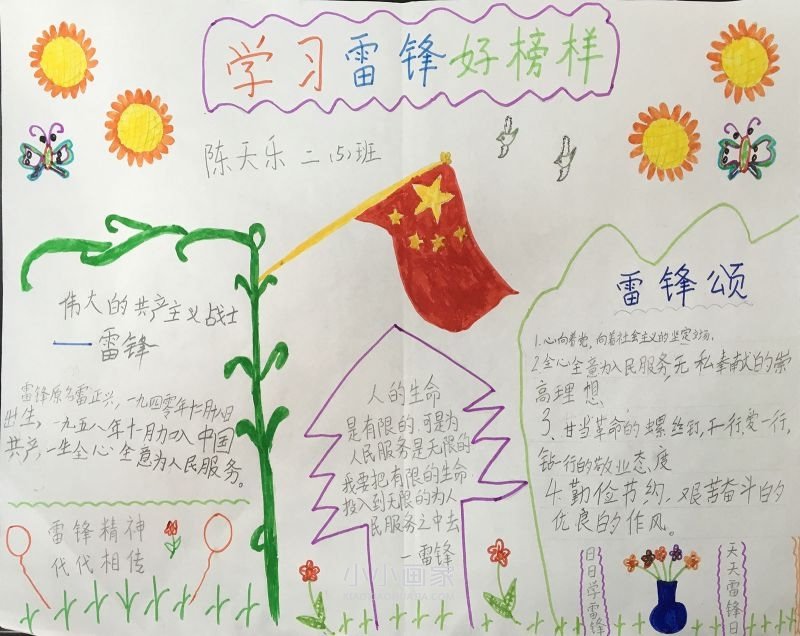 学习雷锋好榜样
陈天乐 二(5)班
伟大的共产主义战士
一雷锋
雷锋原名雷正兴,一九四零年十二月八日
出生,一九五八年十月加入中国
共产,一生全心全意为人民服务。
雷锋精神
代代相传
人的生命
是有限的,可是为
人民服务是无限的
我要把有限的生命
投入到无限的为人
民服务之中去
一雷锋
雷锋颂
1.心向着党,向着社会主义的坚定立场。
2.全心全意为人民服务,无私奉献的崇
高理想
3、甘当革命的螺丝钉,干一行,爱一行,
钻一行的敬业态度
4.勤俭节约、艰苦奋斗的
优良的作风。
日日学雷锋
天天雷锋日
小小画家
XIAOXIAOHUAJIA.COM